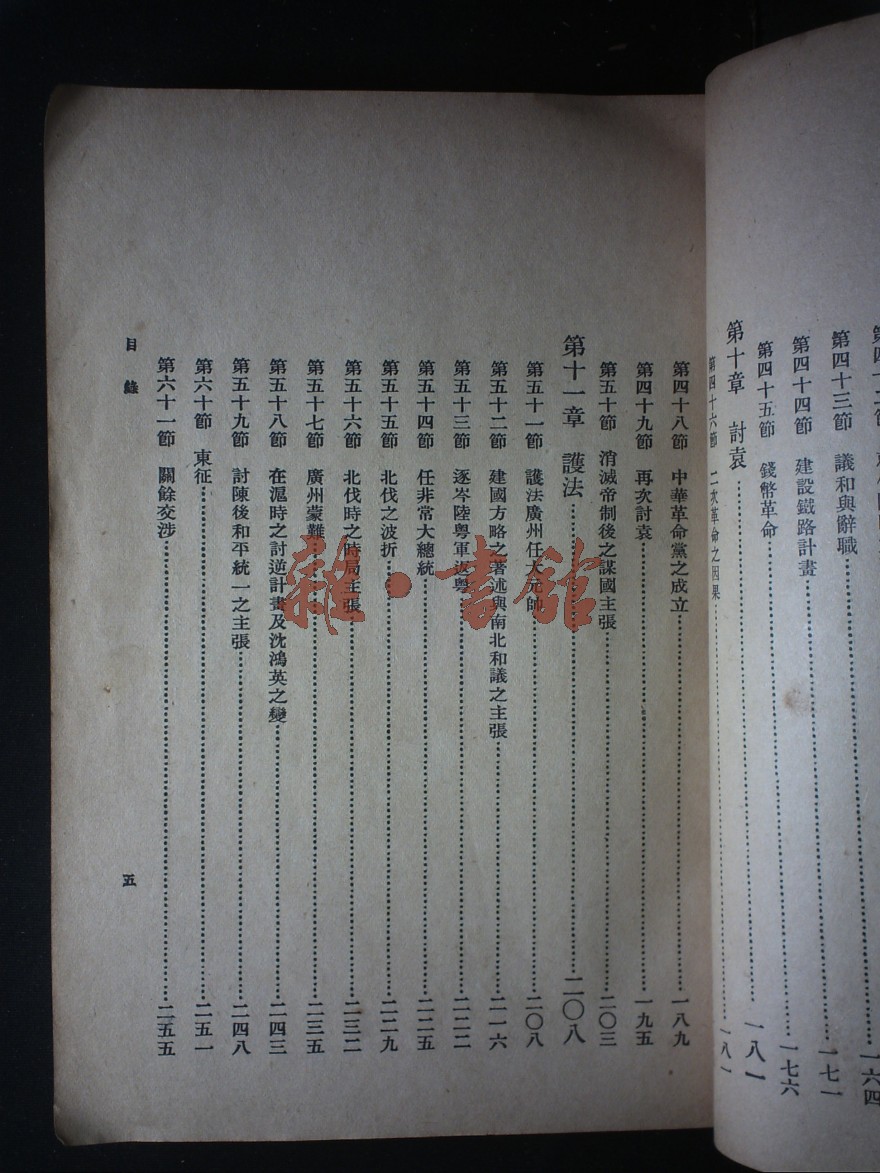 第四十三節　議和與辭職……一七一
第四十四節　建設鐵路計畫……一七六
第四十五節　錢幣革命……一八一
第十章　討袁……一八一
第四十六節　二次革命之因果
第四十八節　中華革命黨之成立……一八九
第四十九節　再次討袁……一九五
第五十節　消滅帝制後之謀國主張……二〇三
第十一章　護法……二〇八
第五十一節　護法廣州任大元帥……二〇八
第五十二節　建國方略之著述與南北和議之主張……二一六
第五十三節　逐岑陸粵軍返粵……二二二
第五十四節　任非常大總統……二二五
第五十五節　北伐之波折……二二九
第五十六節　北伐時之時局主張……二三二
第五十七節　廣州蒙難……二三五
第五十八節　在滬時之討逆計畫及沈鴻英之變……二四三
第五十九節　討陳後和平統一之主張……二四八
第六十節　東征……二五一
第六十一節　關餘交涉……二五五
目錄
五
雜·書館